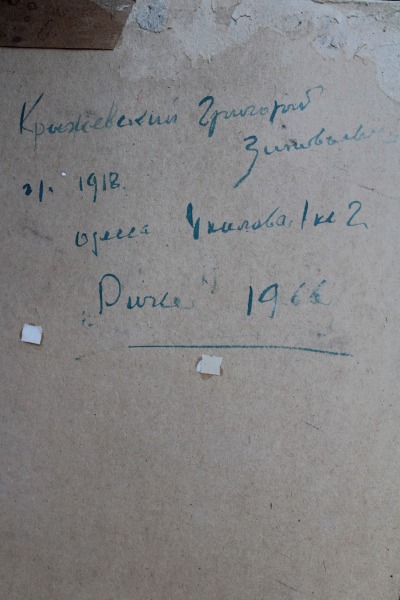 Крыжевский Григорий
Зиновьевич
г/р. 1918
одесса Чкалова 1 кв 2
1966